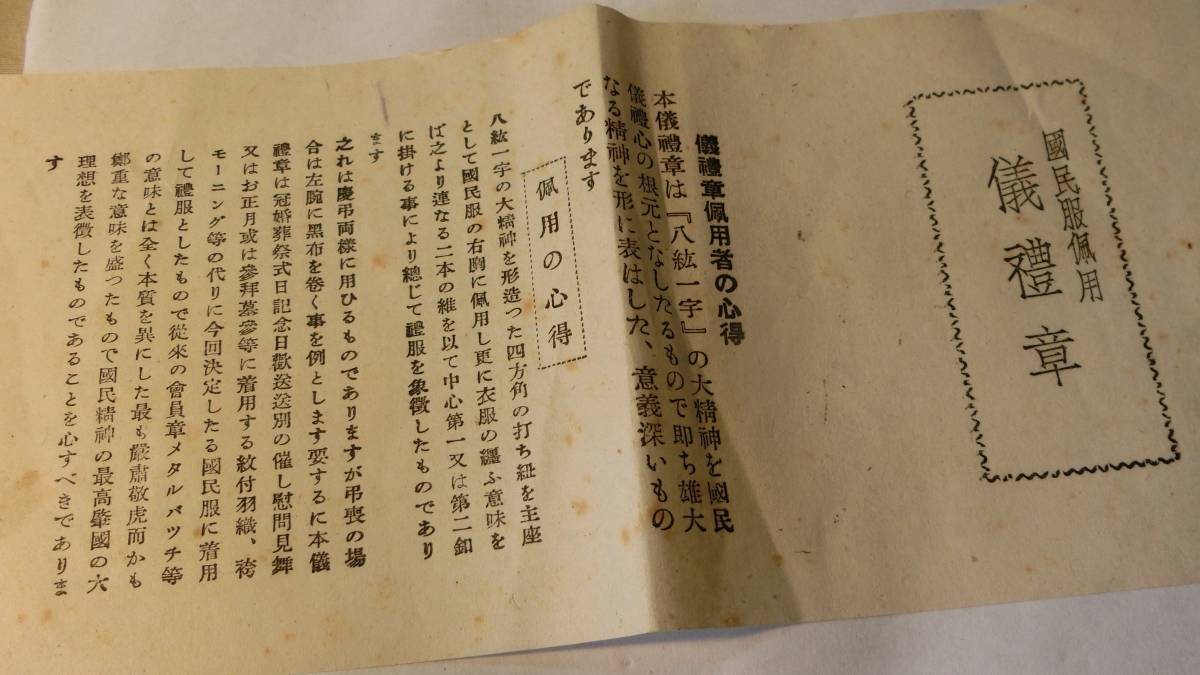 國民服佩用
儀禮章
儀禮章佩用者の心得
本儀禮章は『八紘一宇』の大精神を國民
儀禮心の根元となしたるもので即ち雄大
なる精神を形に表はした、意義深いもの
であります
佩用の心得
八紘一宇の大精神を形造つた四方角の打ち紐を主座
として國民服の右胸に佩用し更に衣服の纒ふ意味を
ば之より連なる二本の維を以て中心第一又は第二釦
に掛ける事により總じて禮服を象徴したものであり
ます
之れは慶弔両様に用ひるものでありますが弔喪の場
合は左腕に黒布を卷く事を例とします要するに本儀
禮章は冠婚葬祭式日記念日歡送送別の催し慰問見舞
又はお正月或は參拜墓參等に着用する紋付羽織、袴
モーニング等の代りに今回決定したる國民服に着用
して禮服としたもので從來の會員章メタルバツチ等
の意味とは全く本質を異にした最も嚴肅敬虎而かも
鄭重な意味を盛つたもので國民精神の最高肇國の大
理想を表徴したものであることを心すべきでありま
す